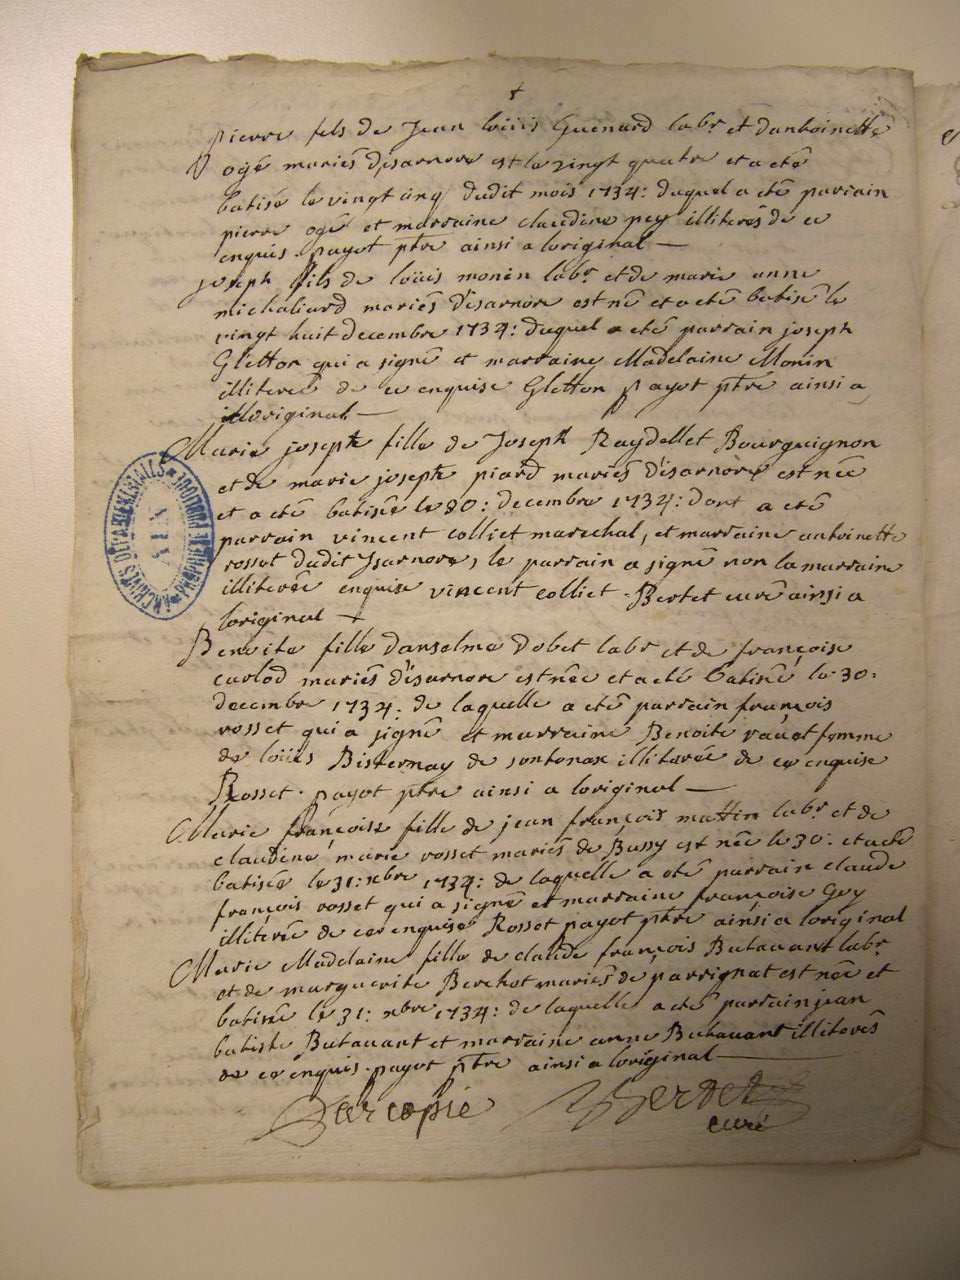 pierre fils de Jean loüis Guenard labr et dantoinette
ogé mariés disarnore est le vingt quatre et a eté
batisé le vingt cinq dudit mois 1734: duquel a eté parrain
pierre ogé et marraine claudine pey illiterés de ce
enquis. payot ptre ainsi a loriginal
joseph fils de loüis monin labr et de marie anne
michaliard mariés d'isarnore est né et a eté batisé le
vingt huit decembre 1734: duquel a eté parrain joseph
Gletton qui a signé et marraine Madelaine Monin
illiteree de ce enquise Gletton payot ptre ainsi a
loriginal
Marie joseph fille de Joseph Raydellet Bourguignon
et de marie joseph piard mariés d'isarnore est née
et a eté batisée le 30: decembre 1734: dont a eté
parrain vincent colliet marechal, et marraine antoinette
rosset dudit Isarnore, le parrain a signé non la marraine
illiterée enquise vincent colliet. Bertet curé ainsi a
loriginal
Benoite fille danselme dobet labr et de françoise
carlod mariés d'isarnore est née et a eté batisée le 30:
decembre 1734: de laquelle a eté parrain françois
rosset qui a signé et marraine Benoite femme
de loüis Bisternay de sontonax illiterée de ce enquise
Rosset. payot ptre ainsi a loriginal
Marie françoise fille de jean françois mattin labr et de
claudine marie rosset mariés de Bussy est née le 30: et a eté
batisée le 31: xbre 1734: de laquelle a eté parrain claude
françois rosset qui a signé et marraine françoise Goy
illiterée de ce enquise Rosset payot ptre ainsi a loriginal
Marie Madelaine fille de claude françois Butavant labr
et de marguerite Berchot mariés de parrignat est née et
batisée le 31: xbre 1734: de laquelle a eté parrain jean
batiste Butavant et marraine anne Butavant illiterés
de ce enquis. payot ptre ainsi a loriginal
Par copie Bertet
curé
ARCHIVES DÉPARTEMENTALES
AIN